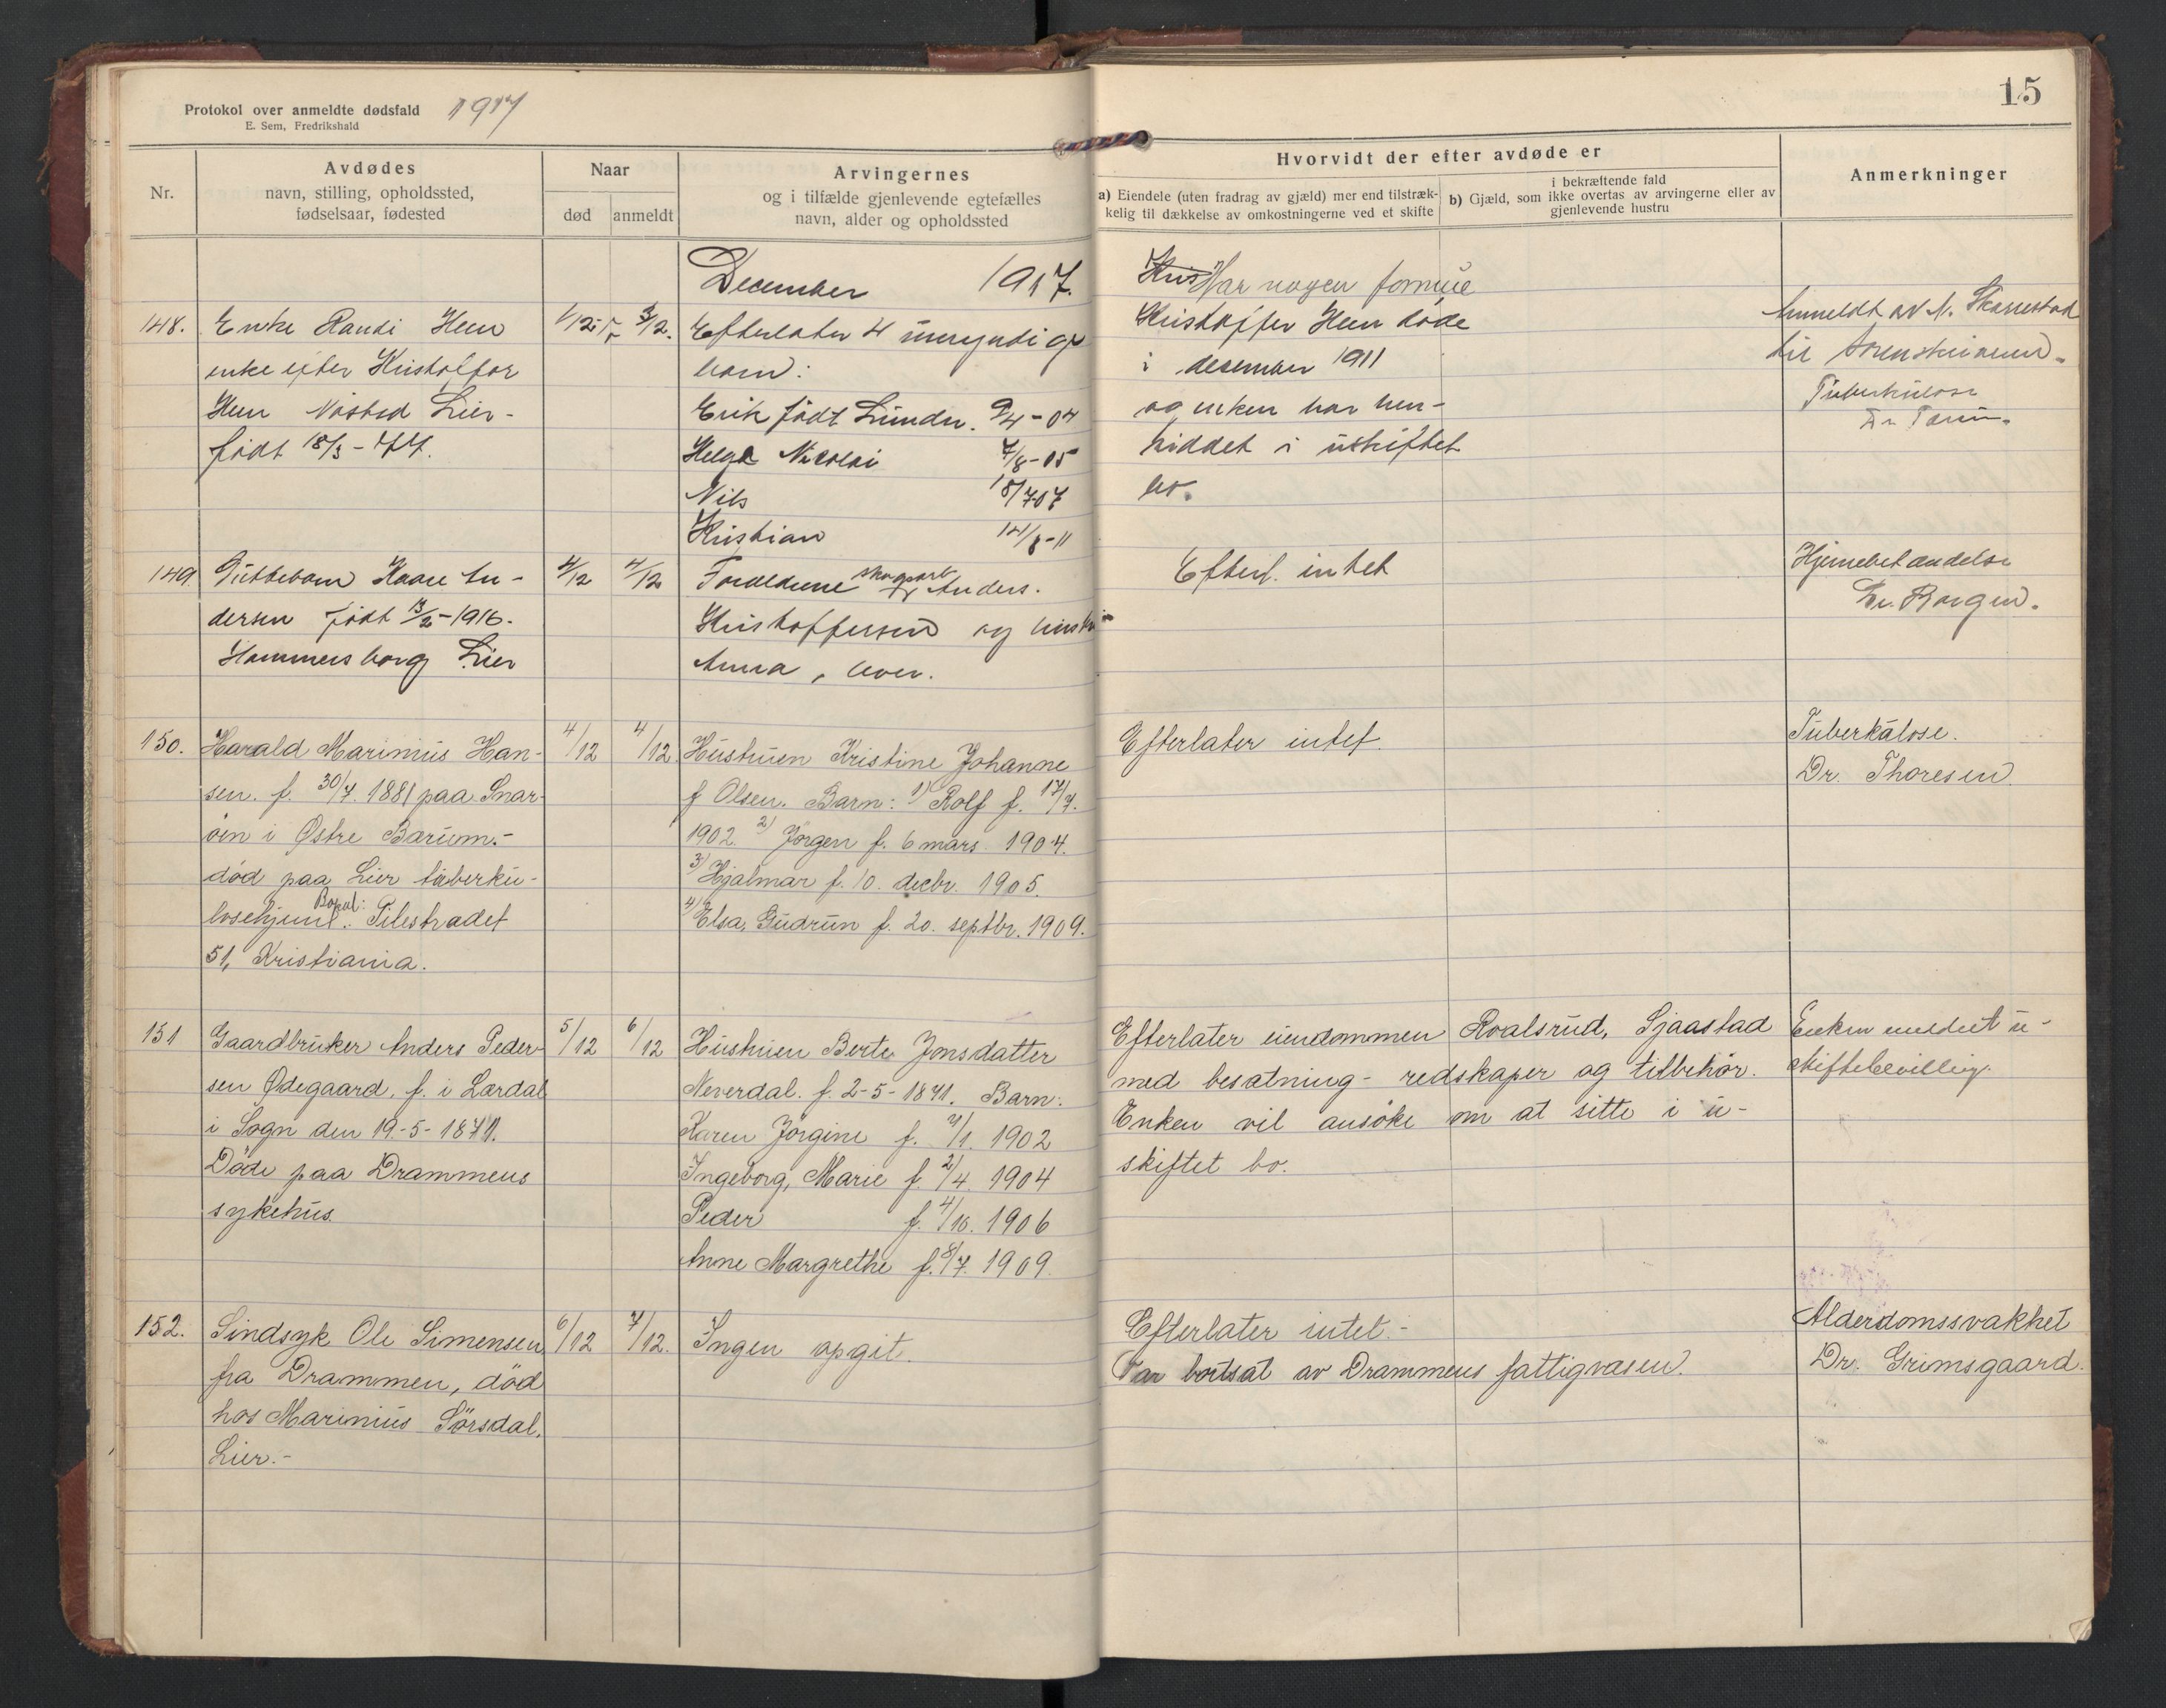 Protokol over anmeldte dødsfald 1917
E. Sem, Fredrikshald
15
Nr.
Avdødes
navn, stilling, opholdssted,
fødselsaar, fødested
Naar
død
anmeldt
Arvingernes
og i tilfælde gjenlevende egtefælles
navn, alder og opholdssted
Hvorvidt der efter avdøde er
a) Eiendele (uten fradrag av gjæld) mer end tilstræk-
kelig til dækkelse av omkostningerne ved et skifte
i bekræftende fald
b) Gjæld, som ikke overtas av arvingerne eller av
gjenlevende hustru
Anmerkninger
December 1917.
148. Enke Randi Hem
enke efter Kristoffer
Hem Nøsted Lier-
født 18/3-77.
1/12-17 3/12.
Efterlater 4 umyndige
barn:
Erik født Lunde. 9/4-04
Helge Nicolai 7/8-05
Nils 18/7 07
Kristian 14/8-11
Har nogen formue
Kristoffer Hem døde
i desember 1911
og enken har hen-
siddet i uskiftet
bo.
Anmeldt av N. Skarrestad
til Sorenskriveren-
Tuberkulose
149. Guttebarn Kaare An-
dersen født 13/2-1916.
Hammersborg Lier
4/12 4/12
Forældrene skogsarb. Anders.
Kristoffersen og hustru
Anna, lever.
Efterl. intet
Hjernebetændelse
Dr. Borgen.
150. Harald Marinius Han-
sen. f. 30/7. 1881 paa Snar-
øen i Østre Bærum.-
død paa Lier tuberku-
losehjem. Bopæl: Pilestrædet
51, Kristiania.
4/12 4/12.
Hustruen Kristine Johanne
f Olsen. Barn: 1) Rolf f. 17/7.
1902. 2) Jørgen f. 6 mars 1904.
3) Hjalmar f. 10. decbr. 1905.
4) Elsa, Gudrun f. 20. septbr. 1909.
Efterlater intet.
Tuberkulose.
Dr. Thoresen
151 Gaardbruker Anders Peder-
sen Ødegaard, f. i Lærdal
i Sogn den 19-5-1871.
Døde paa Drammens
sykehus.
5/12 6/12
Hustruen Berte Jonsdatter
Neverdal. f. 2-5-1871. Barn:
Karen Jørgine f. /1. 1902
Ingeborg, Marie f. 2/4. 1904
Peder f. 4/10. 1906
Anne Margrethe f. 8/7. 1909.
Efterlater eiendommen Roalsrud, Sjaastad
med besætning- redskaper og tilbehør.
Enken vil ansøke om at sitte i u-
skiftet bo.
Enken meddelt u-
skiftebevilling.
152. Sindsyk Ole Simensen
fra Drammen, død
hos Marinius Sørsdal,
Lier.-
6/12 7/12.
Ingen opgit.
Efterlater intet.-
Var bortsat av Drammens fattigvæsen.
Alderdomssvakhet
Dr. Grimsgaard.